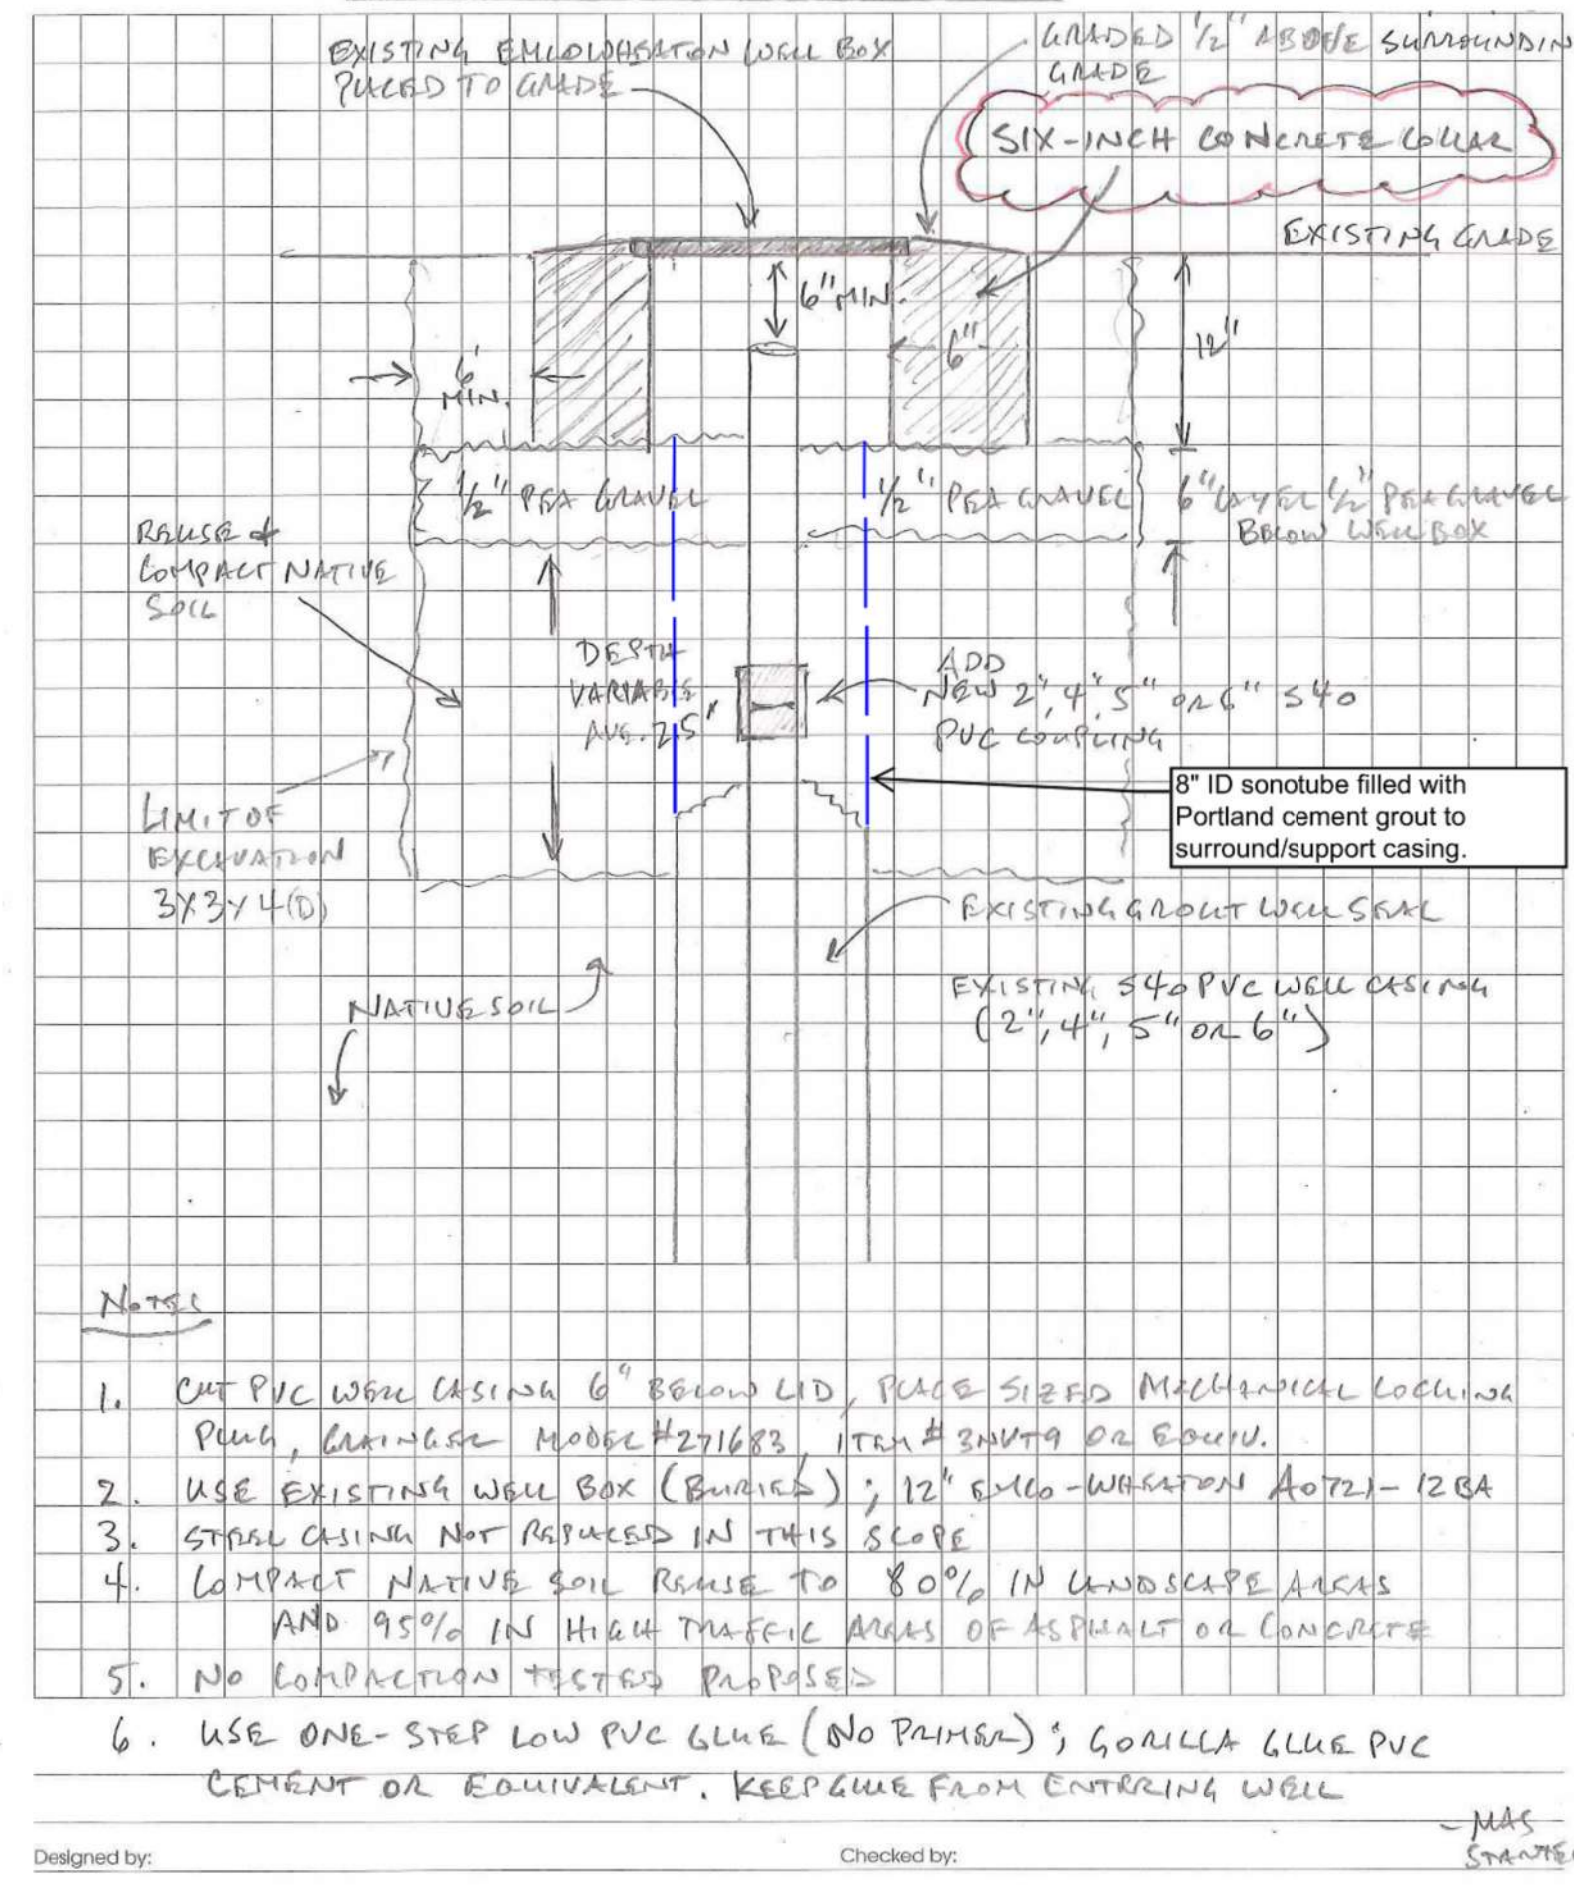 EXISTING EMCOWHEATON WELL BOX
PLACED TO GRADE
GRADED 1/2" ABOVE SURROUNDIN
GRADE
SIX-INCH CONCRETE COLLAR
EXISTING GRADE
6" MIN.
6"
12"
6'
MIN.
1/2" PEA GRAVEL
1/2" PEA GRAVEL
6" LAYER 1/2" PEA GRAVEL
BELOW WELL BOX
REUSE &
COMPACT NATIVE
SOIL
DEPTH
VARIABLE
AVE. 2.5'
ADD
NEW 2", 4", 5" OR 6" S40
PVC COUPLING
8" ID sonotube filled with
Portland cement grout to
surround/support casing.
LIMIT OF
EXCAVATION
3X3X4(D)
EXISTING GROUT WELL SEAL
NATIVE SOIL
EXISTING S40 PVC WELL CASING
(2", 4", 5" OR 6")
NOTES
1. CUT PVC WELL CASING 6" BELOW LID, PLACE SIZED MECHANICAL LOCKING
PLUG, GRAINGER MODEL #271683, ITEM # 3NVT9 OR EQUIV.
2. USE EXISTING WELL BOX (BURIED); 12" EMCO-WHEATON A0721-12BA
3. STEEL CASING NOT REPLACED IN THIS SCOPE
4. COMPACT NATIVE SOIL REUSE TO 80% IN LANDSCAPE AREAS
AND 95% IN HIGH TRAFFIC AREAS OF ASPHALT OR CONCRETE
5. NO COMPACTION TESTED PROPOSED
6. USE ONE-STEP LOW PVC GLUE (NO PRIMER); GORILLA GLUE PVC
CEMENT OR EQUIVALENT. KEEP GLUE FROM ENTERING WELL
- MAS
STANTEC
Designed by:
Checked by: